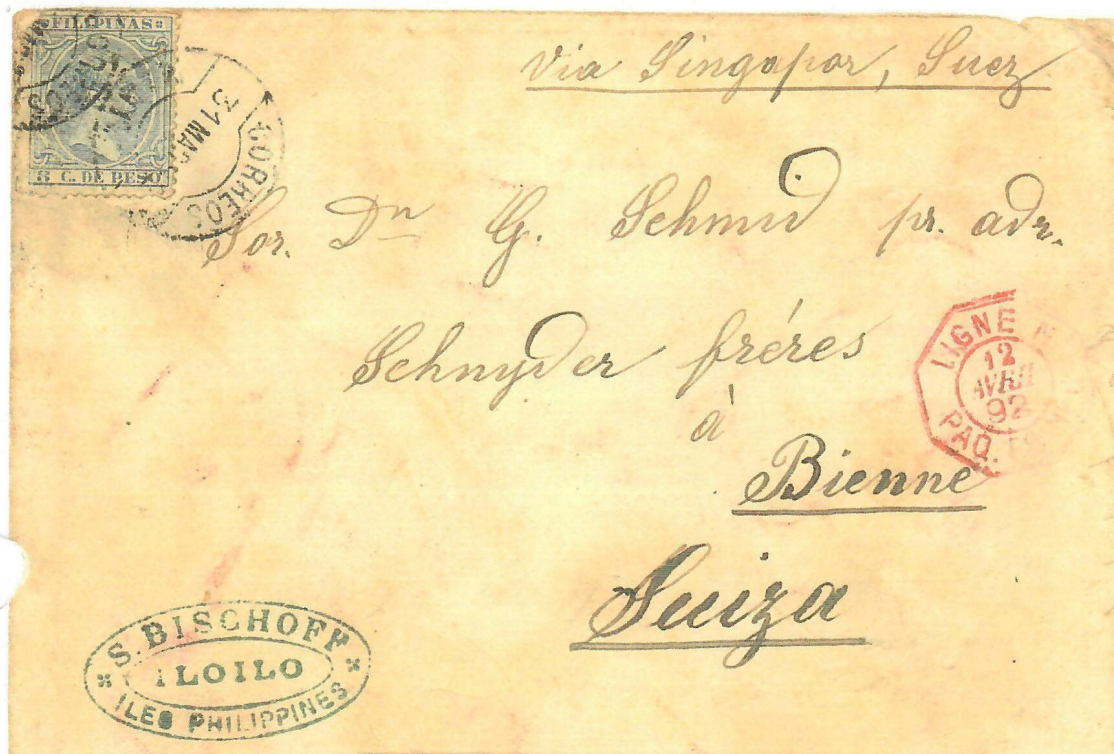 FILIPINAS
8 C. DE PESO
31 MAR
CORREOS
Via Singapor, Suez
Sor. Dn G. Schmid pr. adr.
Schnyder fréres
à
Bienne
Suiza
LIGNE N
12
AVRIL
92
PAQ.
S. BISCHOFF
ILOILO
ILES PHILIPPINES